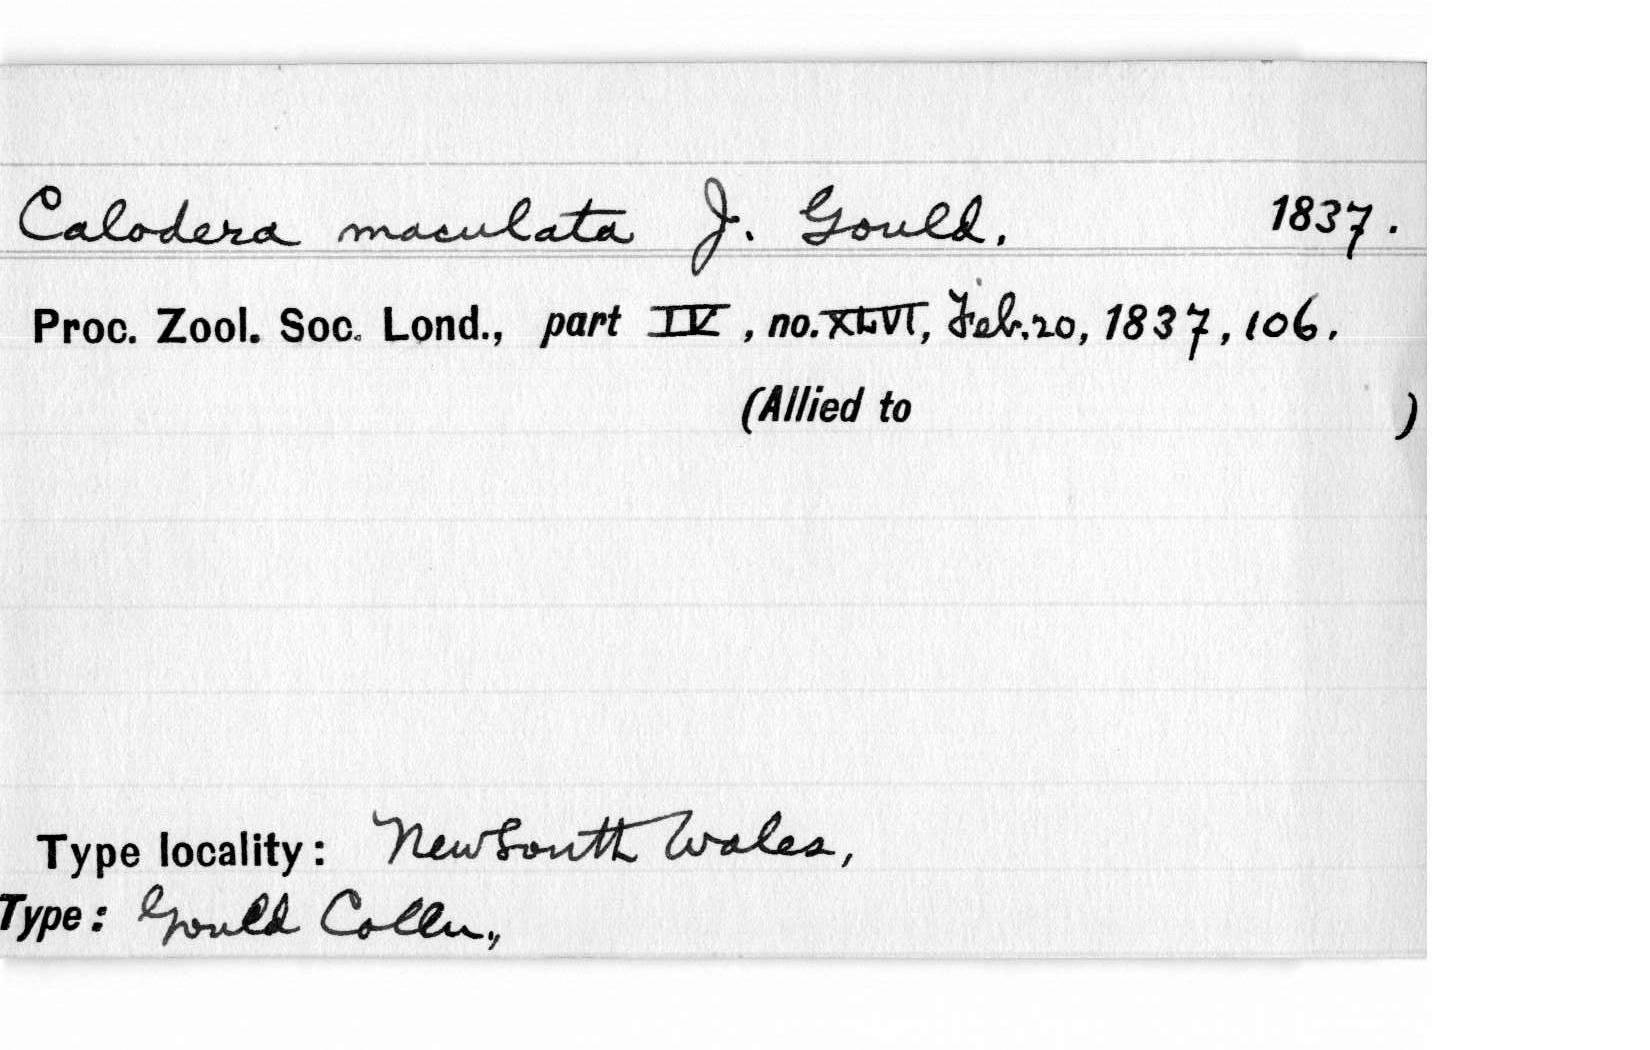 Calodera maculata J. Gould. 1837.
Proc. Zool. Soc. Lond., part IV, no. XLVI, Feb. 20, 1837, 106.
(Allied to )
Type locality: New South Wales,
Type: Gould Colln.,